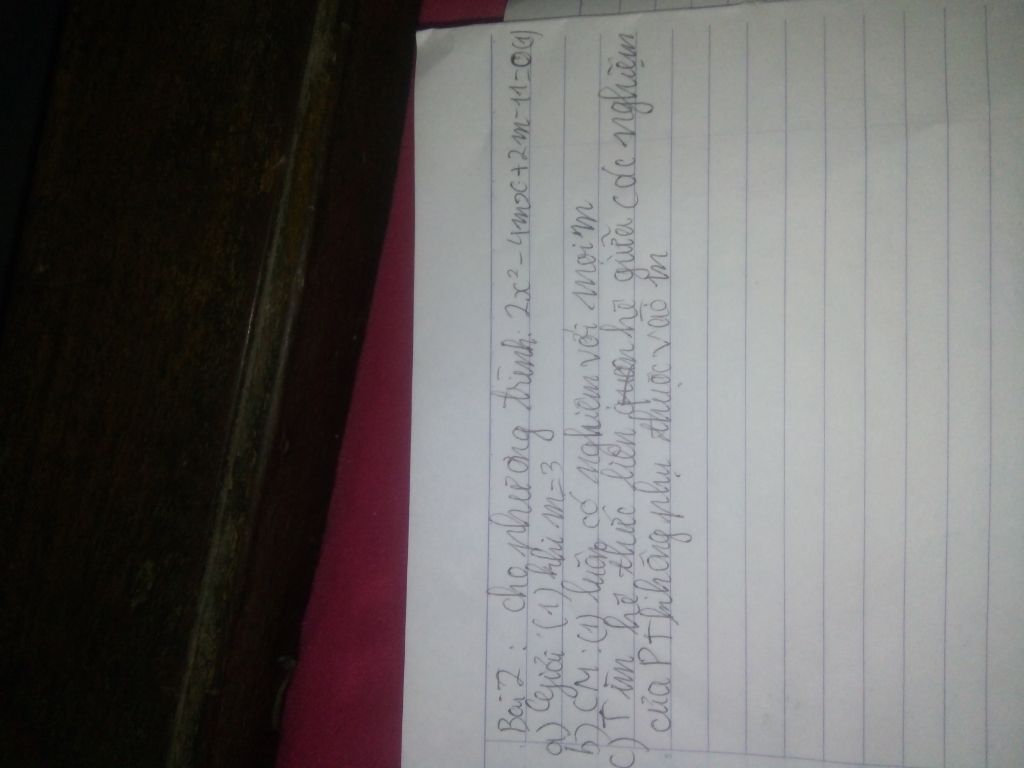 Bài 2 : cho phương trình: 2x² - 4mx + 2m - 11 = 0 (1)
a) Giải (1) khi m = 3
b) CM: (1) luôn có nghiệm với mọi m
c) Tìm hệ thức liên quan hệ giữa các nghiệm
của PT không phụ thuộc vào m